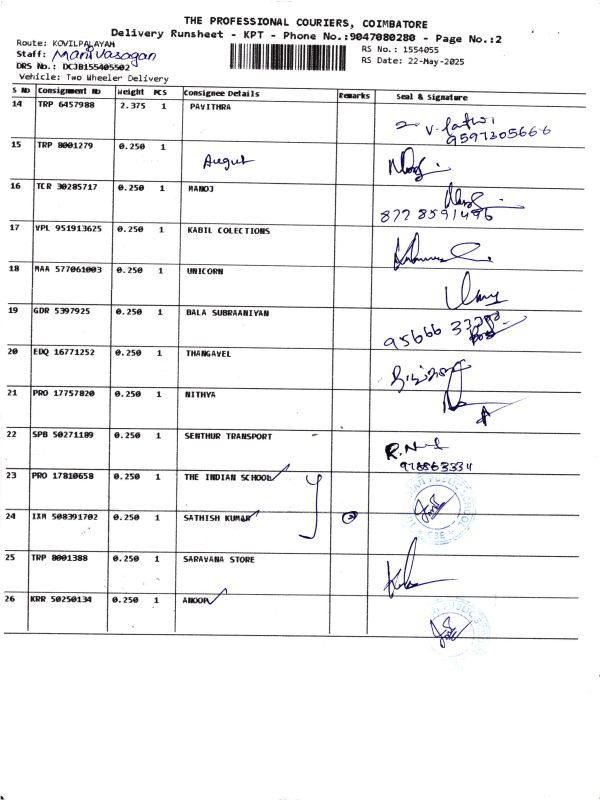 THE PROFESSIONAL COURIERS, COIMBATORE
Delivery Runsheet - KPT - Phone No.:9047080280 - Page No.:2
Route: KOVILPALAYAM
RS No.: 1554055
Staff: Manivasagan
RS Date: 22-May-2025
DRS No.: DCJB155405502
Vehicle: Two Wheeler Delivery
S No Consignment No Weight PCS Consignee Details Remarks Seal & Signature
14 TRP 6457988 2.375 1 PAVITHRA
9597305666
15 TRP 8001279 0.250 1 August
16 TCR 30285717 0.250 1 MANOJ
8778591496
17 VPL 951913625 0.250 1 KABIL COLECTIONS
18 MAA 577061003 0.250 1 UNICORN
19 GDR 5397925 0.250 1 BALA SUBRAANIYAN
20 EDQ 16771252 0.250 1 THANGAVEL
21 PRO 17757820 0.250 1 NITHYA
22 SPB 50271189 0.250 1 SENTHUR TRANSPORT
23 PRO 17810658 0.250 1 THE INDIAN SCHOOL
24 IXM 508391702 0.250 1 SATHISH KUMAR
25 TRP 8001388 0.250 1 SARAVANA STORE
26 KRR 50250134 0.250 1 ANOOP